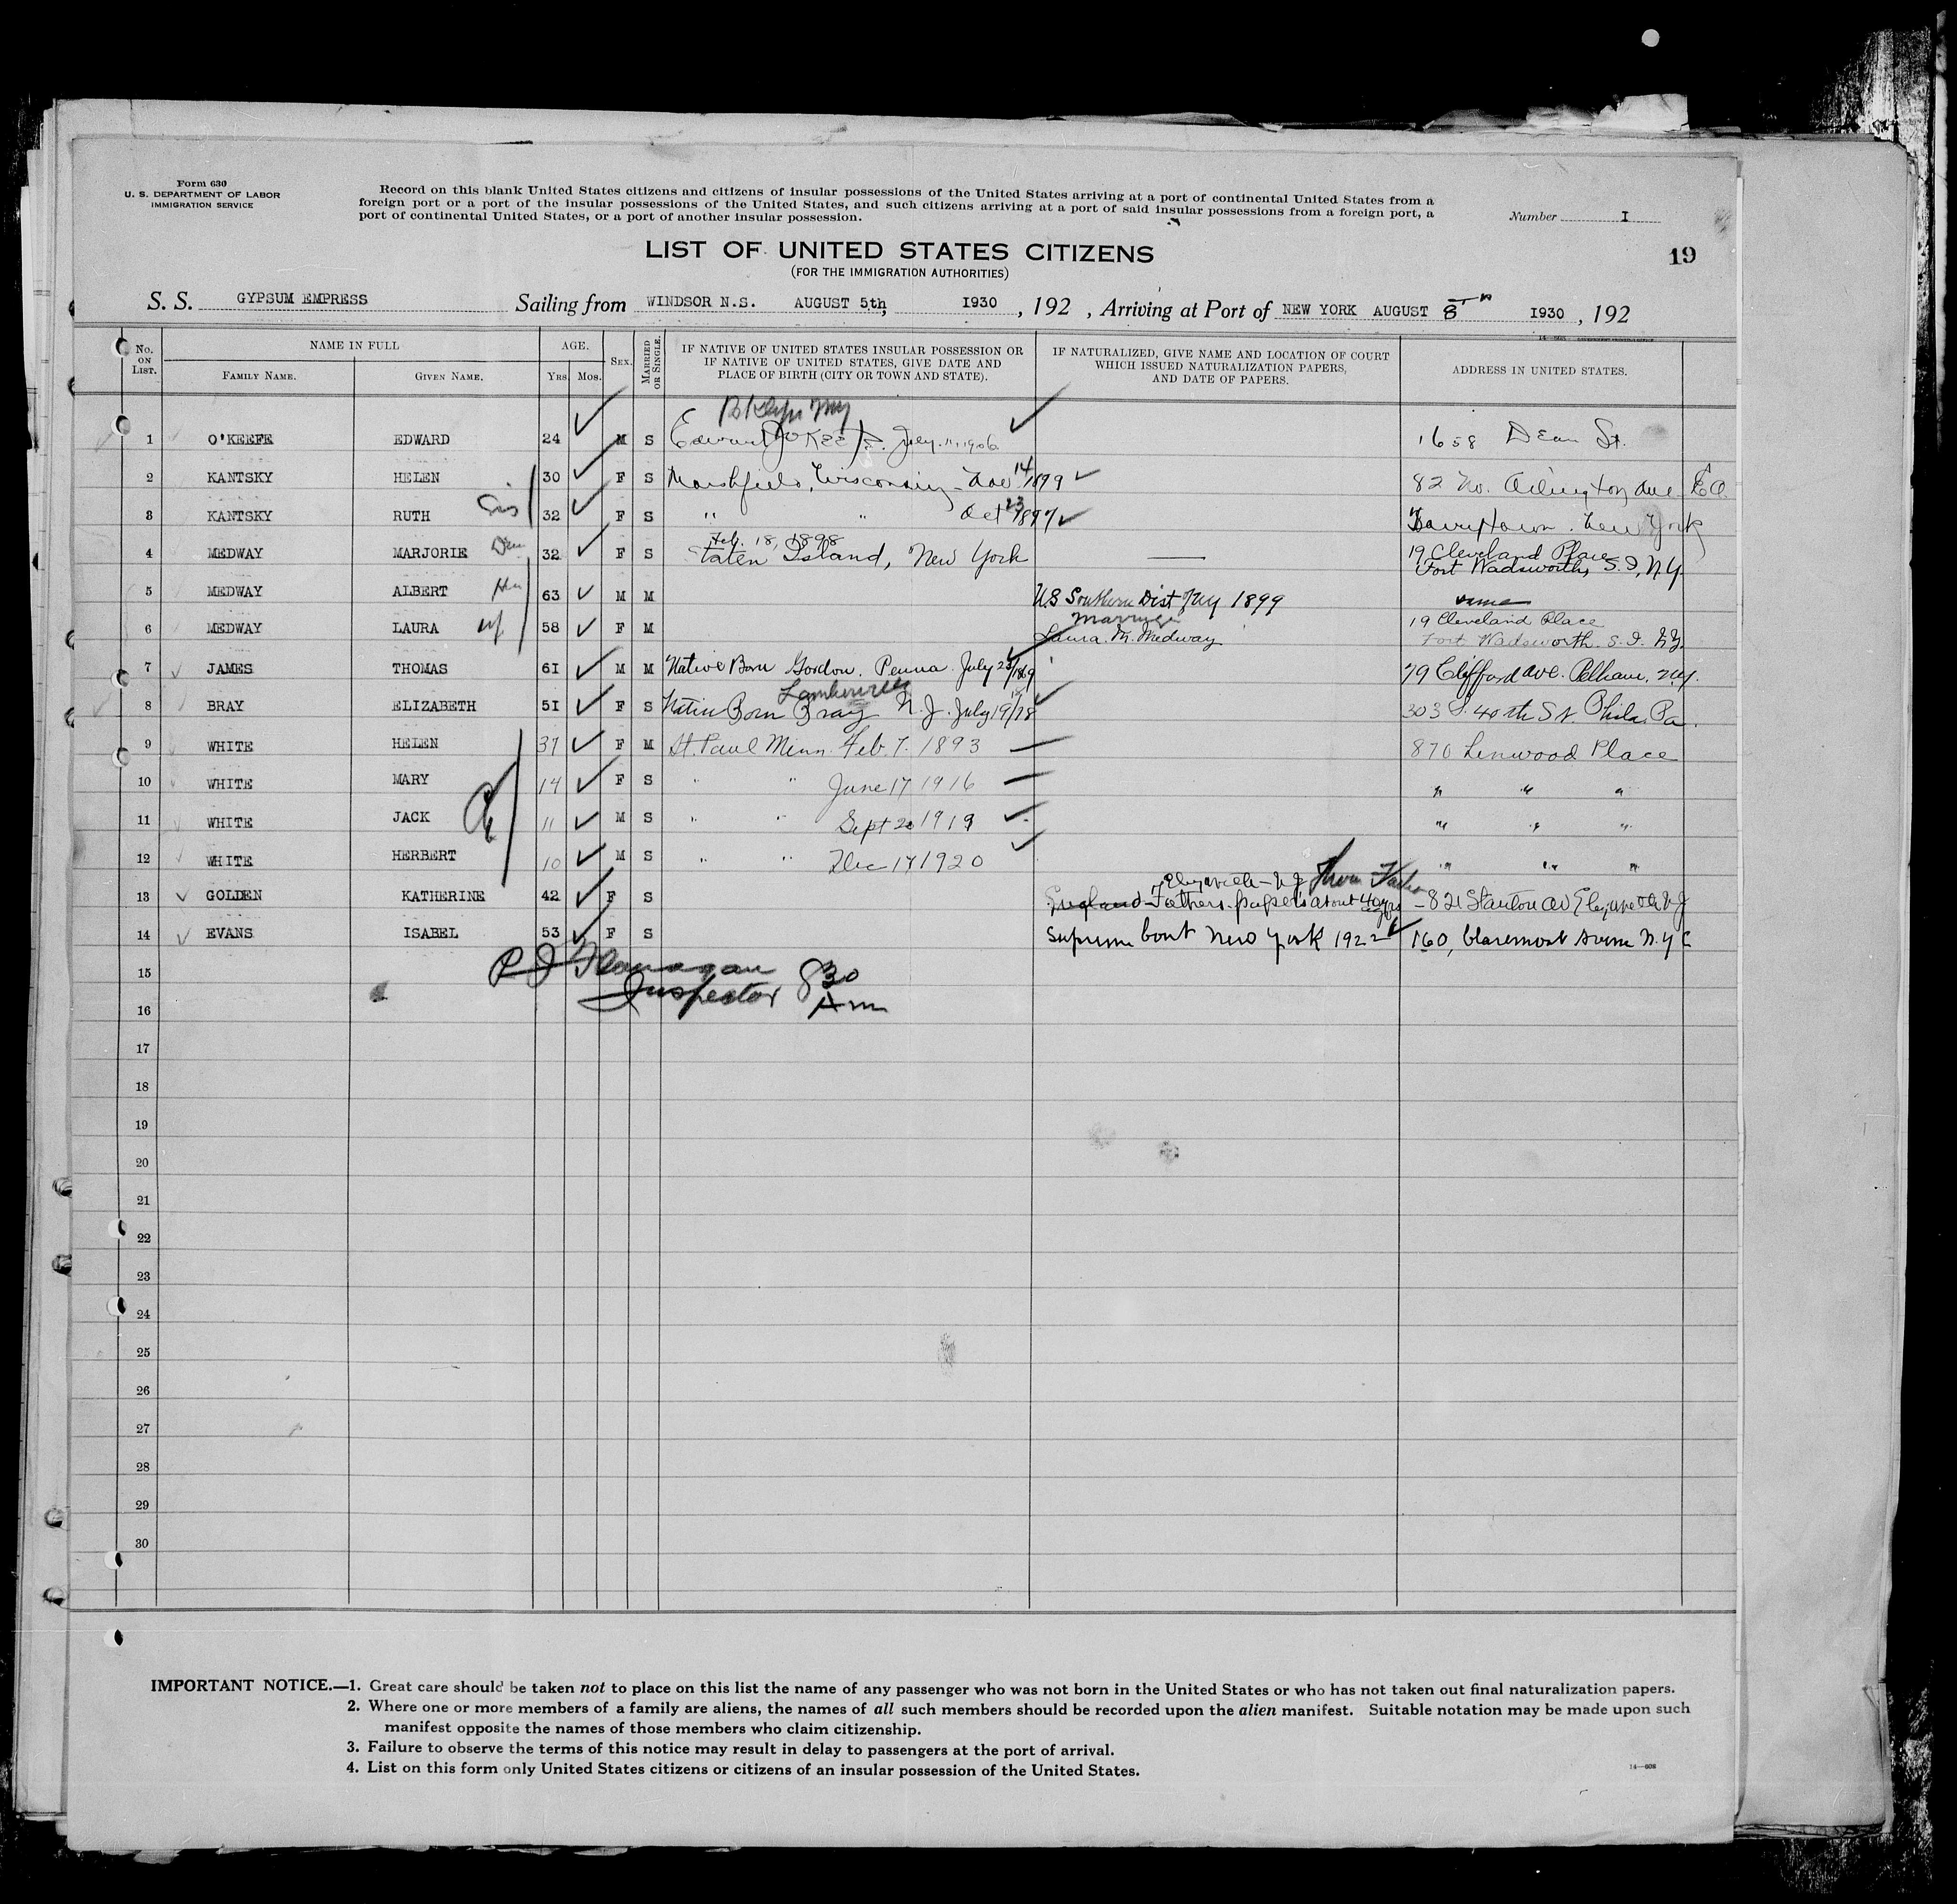 Form 630
U. S. DEPARTMENT OF LABOR
IMMIGRATION SERVICE
Record on this blank United States citizens and citizens of insular possessions of the United States arriving at a port of continental United States from a
foreign port or a port of the insular possessions of the United States, and such citizens arriving at a port of said insular possessions from a foreign port, a
port of continental United States, or a port of another insular possession.
Number I
19
LIST OF UNITED STATES CITIZENS
(FOR THE IMMIGRATION AUTHORITIES)
S. S. GYPSUM EMPRESS Sailing from WINDSOR N.S. AUGUST 5th, 1930, 192 , Arriving at Port of NEW YORK AUGUST 8th 1930, 192
No. ON LIST. NAME IN FULL FAMILY NAME. GIVEN NAME. AGE. Yrs. Mos. SEX. MARRIED OR SINGLE. IF NATIVE OF UNITED STATES INSULAR POSSESSION OR IF NATIVE OF UNITED STATES, GIVE DATE AND PLACE OF BIRTH (CITY OR TOWN AND STATE). IF NATURALIZED, GIVE NAME AND LOCATION OF COURT WHICH ISSUED NATURALIZATION PAPERS, AND DATE OF PAPERS. ADDRESS IN UNITED STATES.
Bklyn NY
1 O'KEEFE EDWARD 24 M S Edward O'Keefe July 11, 1906 1658 Dean St.
2 KANTSKY HELEN 30 F S Marshfield, Wisconsin - Nov 14 1899 82 No. Arlington Ave E.O.
3 KANTSKY RUTH Sis 32 F S " " Oct 23 1897 Tarrytown. New York
Feb. 18, 1898
4 MEDWAY MARJORIE 32 F S Staten Island, New York 19 Cleveland Place
Fort Wadsworth, S.I, N.Y.
5 MEDWAY ALBERT 63 M M U.S Southern Dist NY 1899 same
Marriage
6 MEDWAY LAURA wf 58 F M Laura. M. Medway 19 Cleveland Place
Fort Wadsworth. S.I. N.Y.
7 JAMES THOMAS 61 M M Native Born Gordon. Penna. July 23/1869 79 Clifford Ave. Pelham, N.Y.
Lambertville
8 BRAY ELIZABETH 51 F S Native Born Bray N.J. July 19/1878 303 S. 40th St Phila. Pa.
9 WHITE HELEN 37 F M St. Paul Minn. Feb. 7. 1893 870 Linwood Place
10 WHITE MARY 14 F S " " June 17 1916 " " "
11 WHITE JACK 11 M S " " Sept 20 1919 " " "
12 WHITE HERBERT 10 M S " " Dec 17 1920 " " "
13 GOLDEN KATHERINE 42 F S England Fathers papers about 40 yrs - 821 Stanton Av Elizabeth N J
14 EVANS ISABEL 53 F S Supreme Court New York 1922 160, Claremont Avenue N.Y C
P J Flanagan
Inspector 8 30
Am
15
16
17
18
19
20
21
22
23
24
25
26
27
28
29
30
IMPORTANT NOTICE.—1. Great care should be taken not to place on this list the name of any passenger who was not born in the United States or who has not taken out final naturalization papers.
2. Where one or more members of a family are aliens, the names of all such members should be recorded upon the alien manifest. Suitable notation may be made upon such
manifest opposite the names of those members who claim citizenship.
3. Failure to observe the terms of this notice may result in delay to passengers at the port of arrival.
4. List on this form only United States citizens or citizens of an insular possession of the United States.